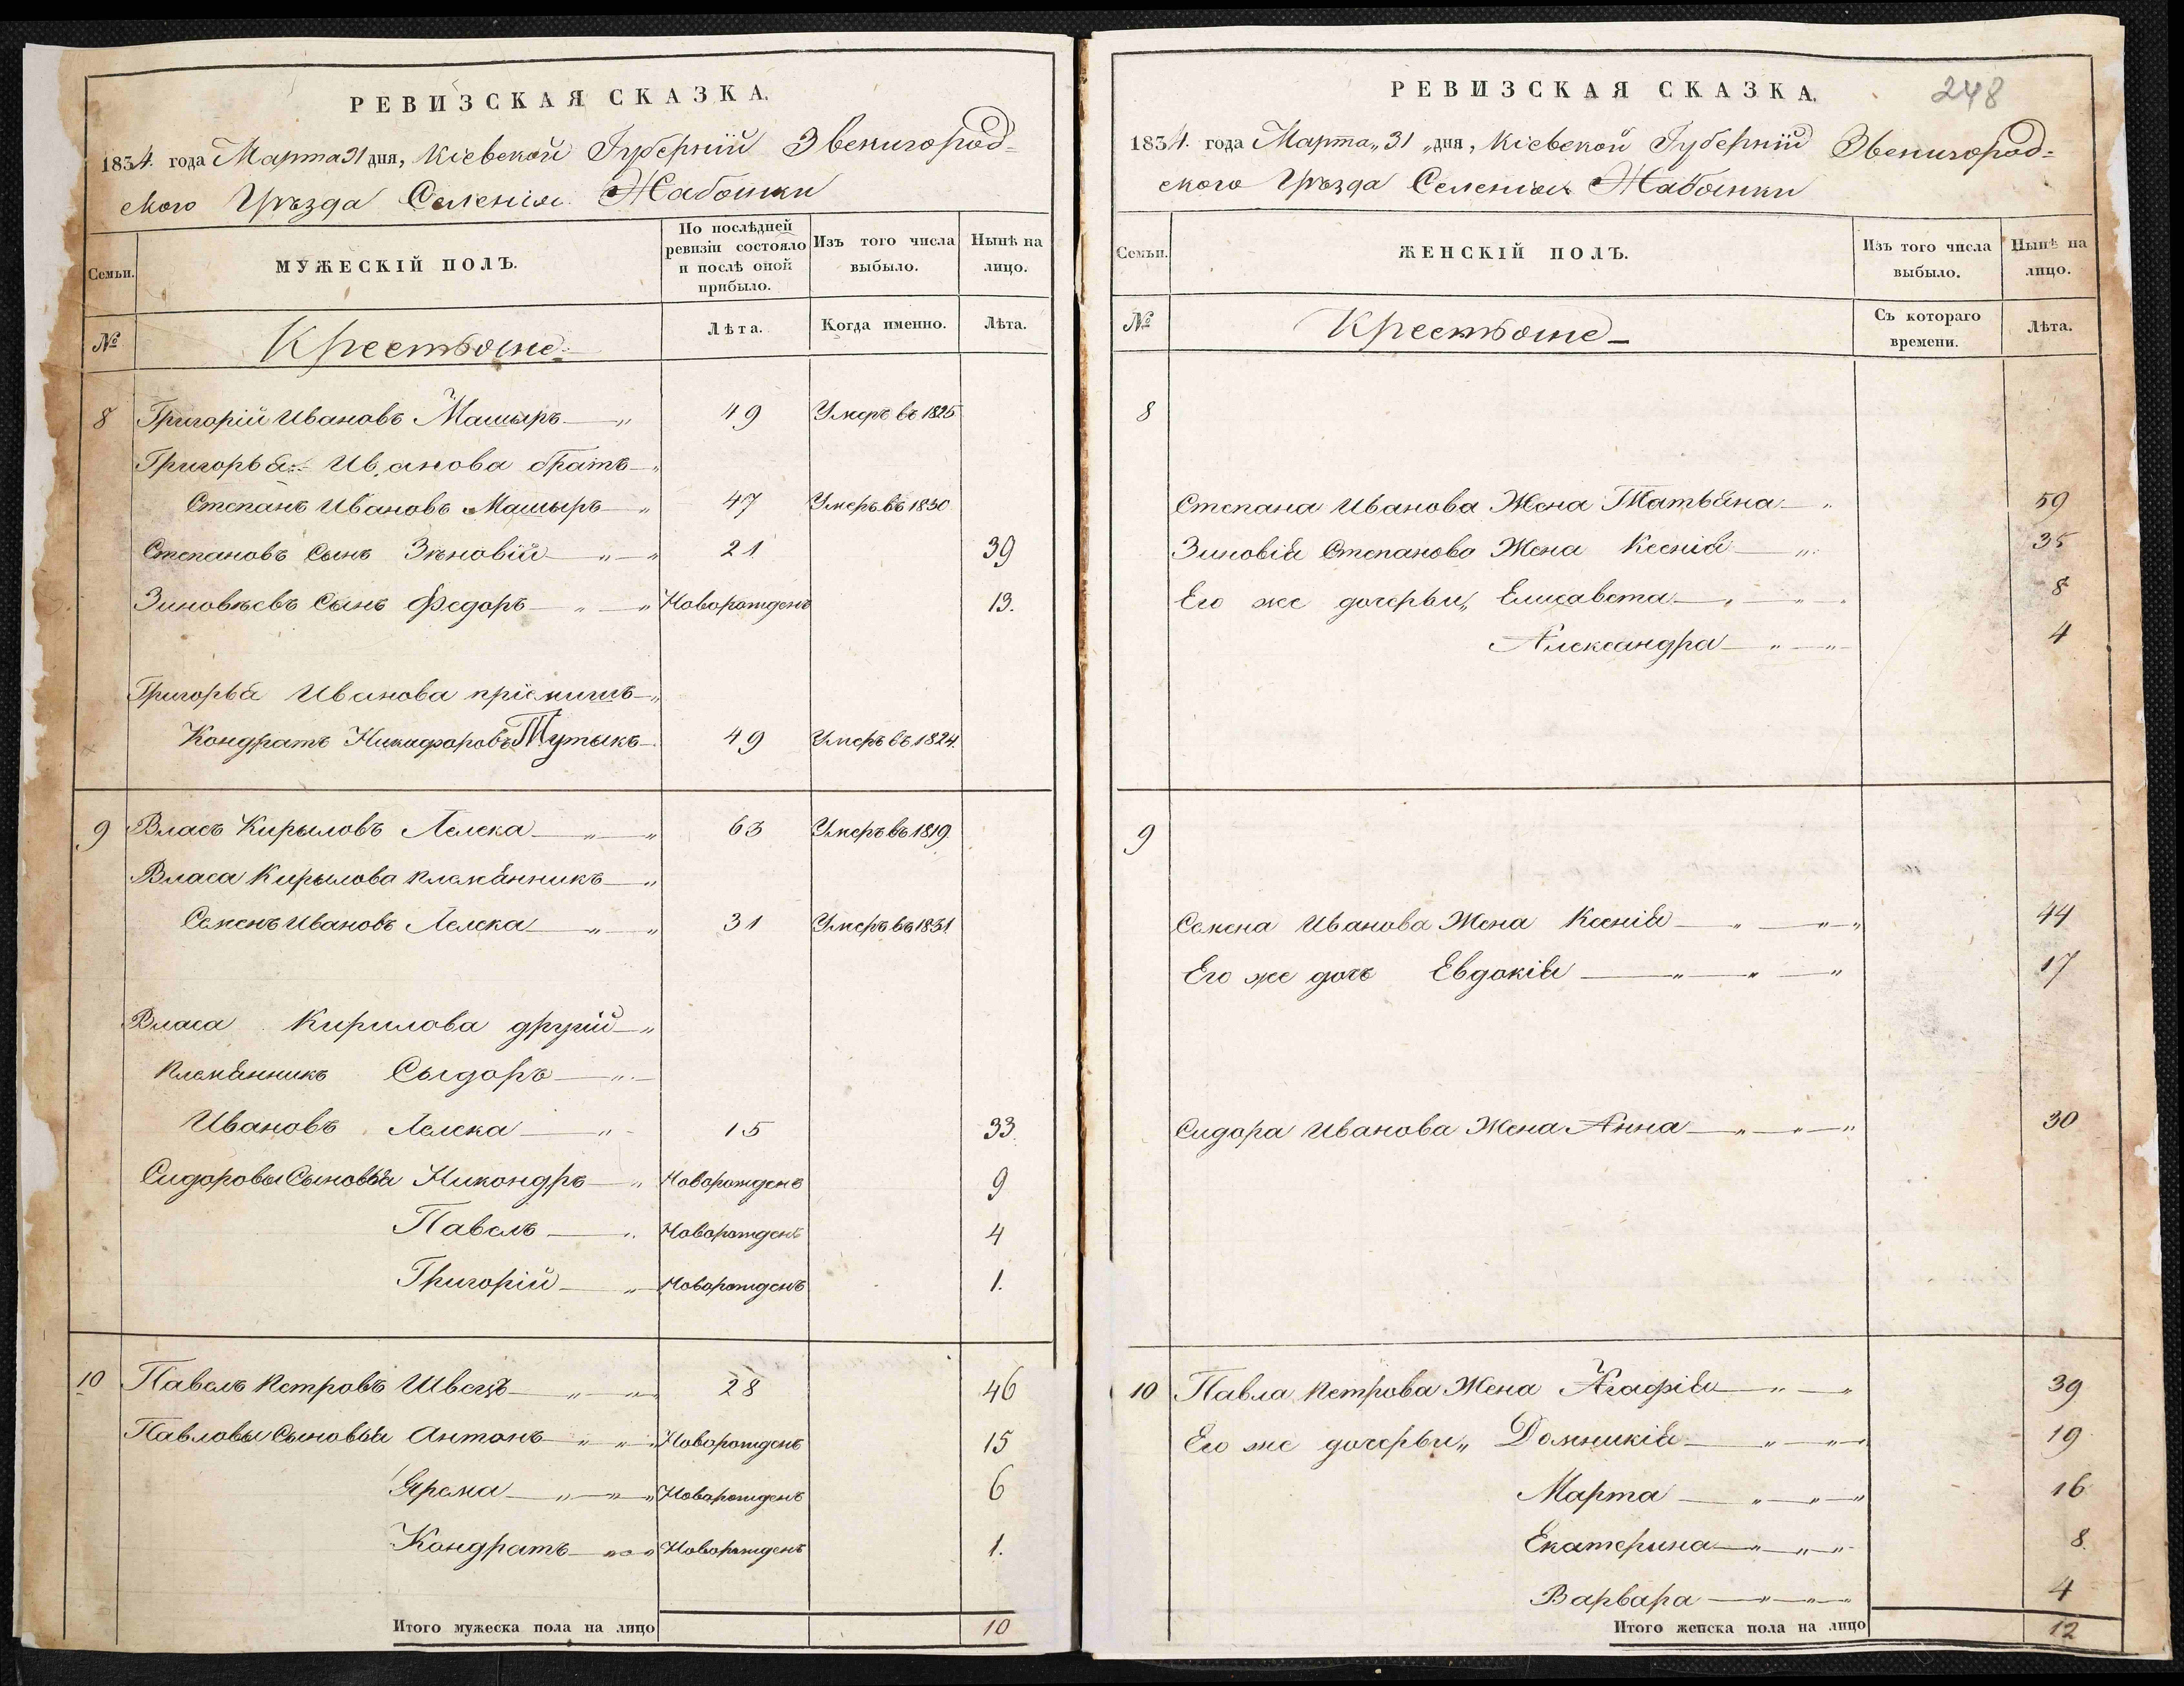 РЕВИЗСКАЯ СКАЗКА.
1834. года Марта 31 дня, Кіевской Губерніи Звенигород=
ского Уѣзда Селенія Жабянки
Семьи.
МУЖЕСКІЙ ПОЛЪ.
По послѣдней ревизіи состояло и послѣ оной прибыло.
Изъ того числа выбыло.
Нынѣ на лицо.
№
Крестьяне
Лѣта.
Когда именно.
Лѣта.
8 Григорій Ивановъ Машыръ 49 Умеръ въ 1825
Григорья Иванова братъ
Степанъ Ивановъ Машыръ 47 Умеръ въ 1830
Степановъ Сынъ Зѣновій 21 39
Зиновѣевъ Сынъ Федоръ Новорожденъ 13.
Григорья Иванова пріемишъ
Кондратъ Никифоровъ Тутыкъ 49 Умеръ въ 1824.
9 Власъ Кирыловъ Лелека 63 Умеръ въ 1819.
Власа Кирылова племянникъ
Семенъ Ивановъ Лелека 31 Умеръ въ 1831
Власа Кирилова другій
племянникъ Сыдоръ
Ивановъ Лелека 15 33.
Сидоровы Сыновья Никондръ Новорожденъ 9
Павелъ Новорожденъ 4
Григорій Новорожденъ 1.
10 Павелъ Петровъ Швецъ 28 46
Павловы Сыновья Антонъ Новорожденъ 15
Ярема Новорожденъ 6
Кондратъ Новорожденъ 1.
Итого мужеска пола на лицо 10
РЕВИЗСКАЯ СКАЗКА.
248
1834. года Марта „31„ дня, Кіевской Губерніи Звенигород=
ского Уѣзда Селенія Жабянки
Семьи.
ЖЕНСКІЙ ПОЛЪ.
Изъ того числа выбыло.
Нынѣ на лицо.
№
Крестьяне
Съ котораго времени.
Лѣта.
8
Степана Иванова Жена Татьяна 59
Зиновія Степанова Жена Ксенія 35
Его же дочерьи„ Елисавета 8
Александра 4
9
Семена Иванова Жена Ксенія 44
Его же дочь Евдокія 17
Сидора Иванова Жена Анна 30
10 Павла Петрова Жена Агафія 39
Его же дочерьи„ Домникія 19
Марта 16
Екатерина 8.
Варвара 4
Итого женска пола на лицо 12